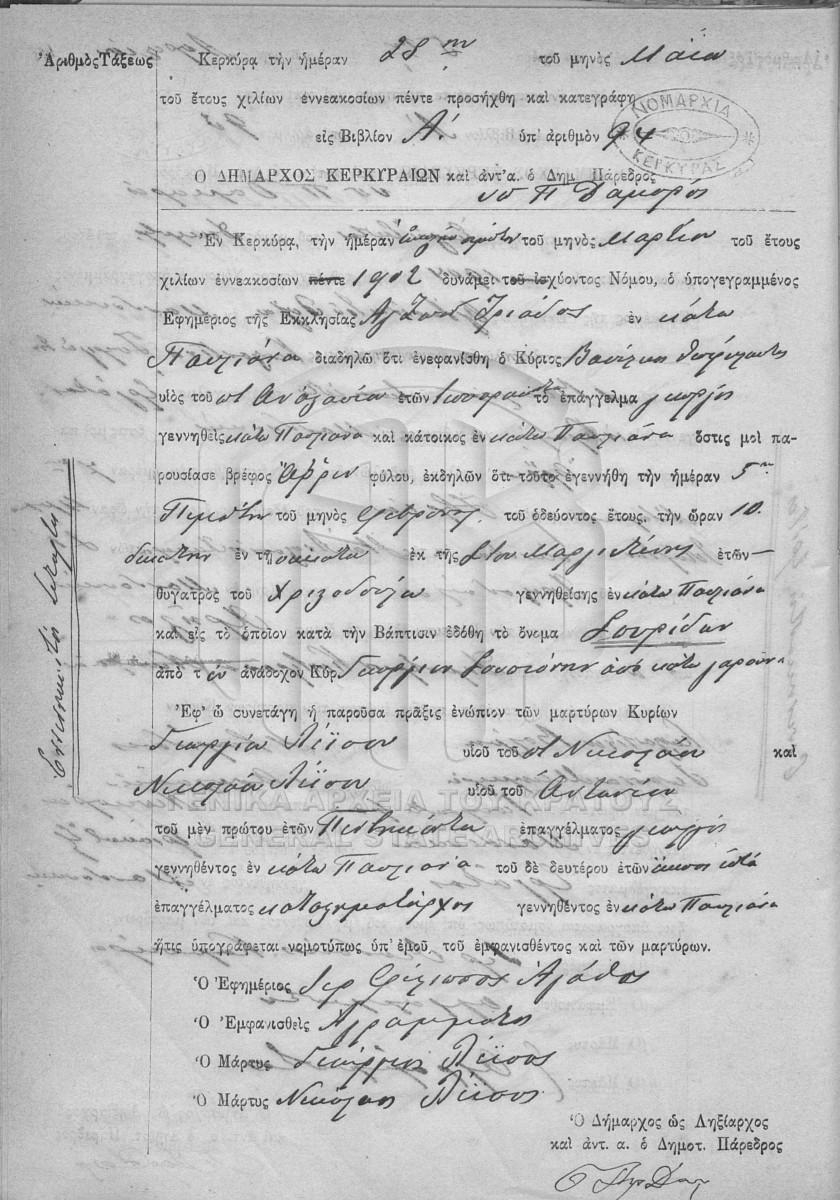 Ἀριθμὸς Τάξεως
Κερκύρα τὴν ἡμέραν 28ην τοῦ μηνὸς Μαΐου
τοῦ ἔτους χιλίων ἐννεακοσίων πέντε προσήχθη καὶ κατεγράφη
εἰς Βιβλίον Α΄. ὑπ' ἀριθμὸν 94
ΝΟΜΑΡΧΙΑ ΚΕΡΚΥΡΑΣ
Ο ΔΗΜΑΡΧΟΣ ΚΕΡΚΥΡΑΙΩΝ καὶ ἀντ'α. ὁ Δημ Πάρεδρος
Ἐν Κερκύρᾳ, τὴν ἡμέραν τοῦ μηνὸς Μαρτίου τοῦ ἔτους
χιλίων ἐννεακοσίων πέντε 1902 δυνάμει τοῦ ἰσχύοντος Νόμου, ὁ ὑπογεγραμμένος
Ἐφημέριος τῆς Ἐκκλησίας Αγ Τριάδος ἐν κάτω
Παυλιάνα διαδηλῶ ὅτι ἐνεφανίσθη ὁ Κύριος Βασίλης
υἱὸς τοῦ ποτ Αναστασίου ἐτῶν τὸ ἐπάγγελμα γεωργός
γεννηθεὶς κάτω Παυλιάνα καὶ κάτοικος ἐν κάτω Παυλιάνα ὅστις μοὶ πα-
ρουσίασε βρέφος ἄρρεν φύλου, ἐκδηλῶν ὅτι τοῦτο ἐγεννήθη τὴν ἡμέραν 5ην
Πέμπτην τοῦ μηνὸς τοῦ ὁδεύοντος ἔτους, τὴν ὥραν 10.
δεκάτην ἐν τῇ οἰκίᾳ ἐκ τῆς ἐτῶν—
θυγατρὸς τοῦ Χριστοδούλου γεννηθείσης ἐν κάτω Παυλιάνα
καὶ εἰς τὸ ὁποῖον κατὰ τὴν Βάπτισιν ἐδόθη τὸ ὄνομα Σπυρίδων
ἀπὸ τὸν ἀνάδοχον Κύρ Γεώργιον ἀπὸ κάτω
Ἐφ' ᾧ συνετάγη ἡ παροῦσα πρᾶξις ἐνώπιον τῶν μαρτύρων Κυρίων
Γεωργίου Λέϊσου υἱοῦ τοῦ ποτ Νικολάου καὶ
Νικολάου Λέϊσου υἱοῦ τοῦ Ἀντωνίου
τοῦ μὲν πρώτου ἐτῶν Πεντήκοντα ἐπαγγέλματος γεωργός
γεννηθέντος ἐν κάτω Παυλιάνα τοῦ δὲ δευτέρου ἐτῶν εἴκοσι ἑπτά
ἐπαγγέλματος κατασηματάρχος γεννηθέντος ἐν κάτω Παυλιάνα
ἥτις ὑπογράφεται νομοτύπως ὑπ' ἐμοῦ, τοῦ ἐμφανισθέντος καὶ τῶν μαρτύρων.
Ὁ Ἐφημέριος Ιερ Φίλιππος Ἀγάθος
Ὁ Ἐμφανισθεὶς Ἀγράμματος
Ὁ Μάρτυς Γεώργιος Λέϊσος
Ὁ Μάρτυς Νικόλαος Λέϊσος
Ὁ Δήμαρχος ὡς Ληξίαρχος
καὶ ἀντ. α. ὁ Δημοτ. Πάρεδρος
ΓΕΝΙΚΑ ΑΡΧΕΙΑ ΤΟΥ ΚΡΑΤΟΥΣ
GENERAL STATE ARCHIVES